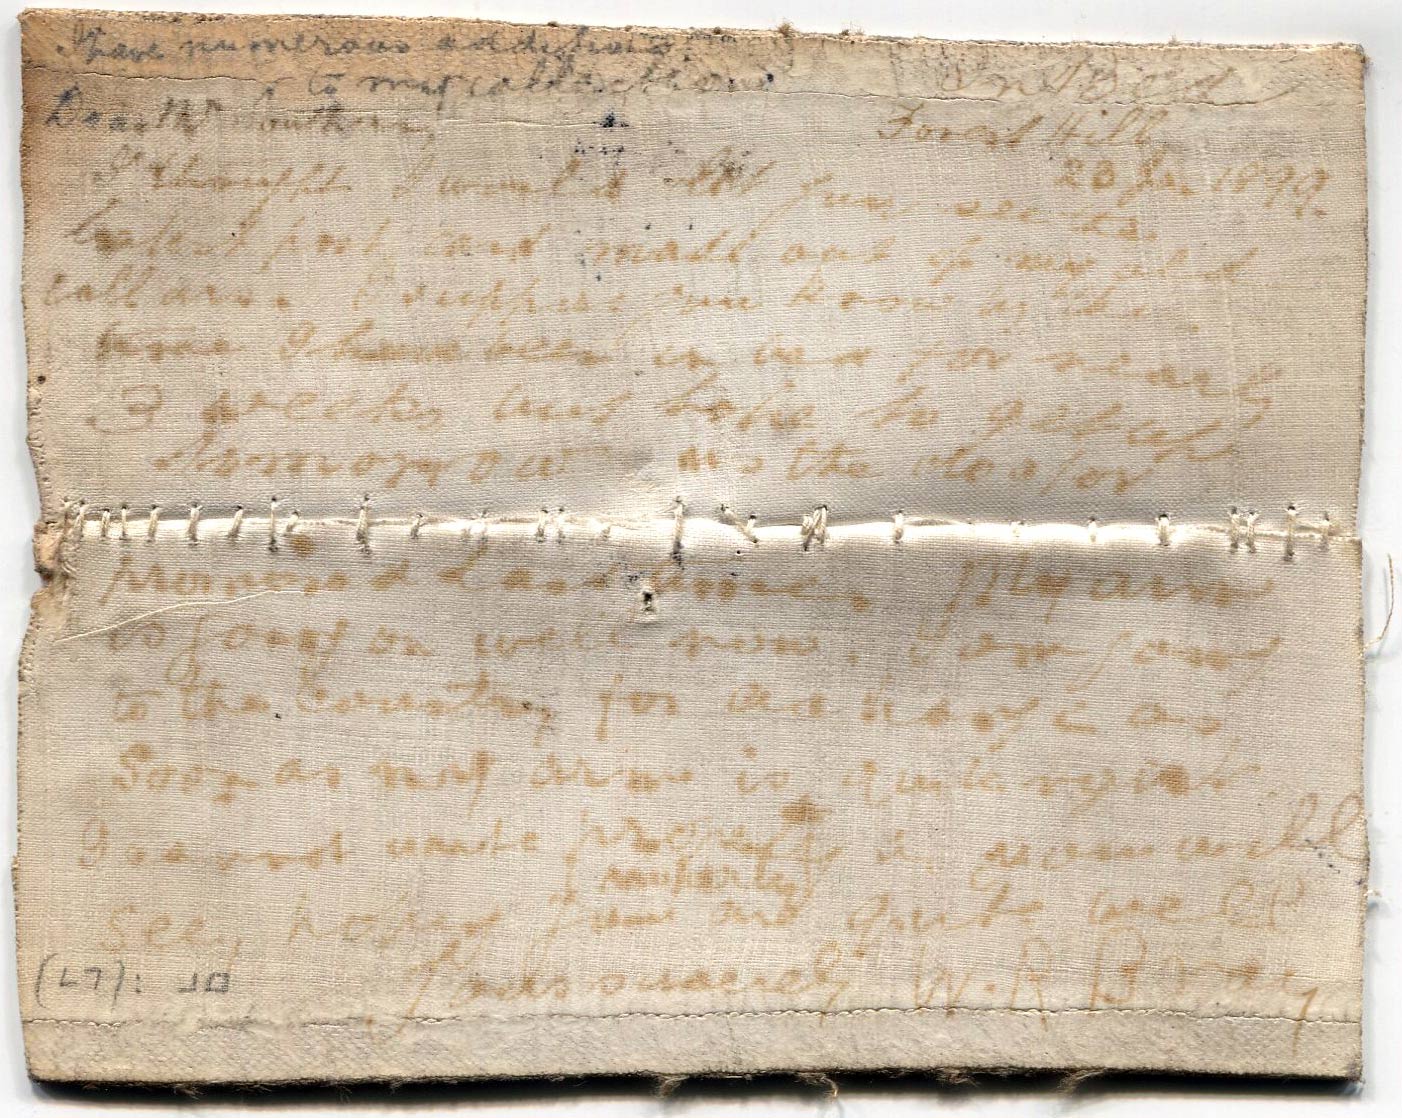 I have numerous additions
to my collection
In Bed
Dear Mr
Forest Hill
20 Jan 1899.
I thought I would let you see
post card made out of my old
collars. I suppose you know by this
time I have been in bed for nearly
3 weeks, but hope to get up
tomorrow as the doctor
promised last time. My arm
is going on well now. I am going
to the country for a change as
soon as my arm is quite right
I cannot write properly as you will
see, hoping you are quite well
Yours sincerely W. R. B
(L7): JD